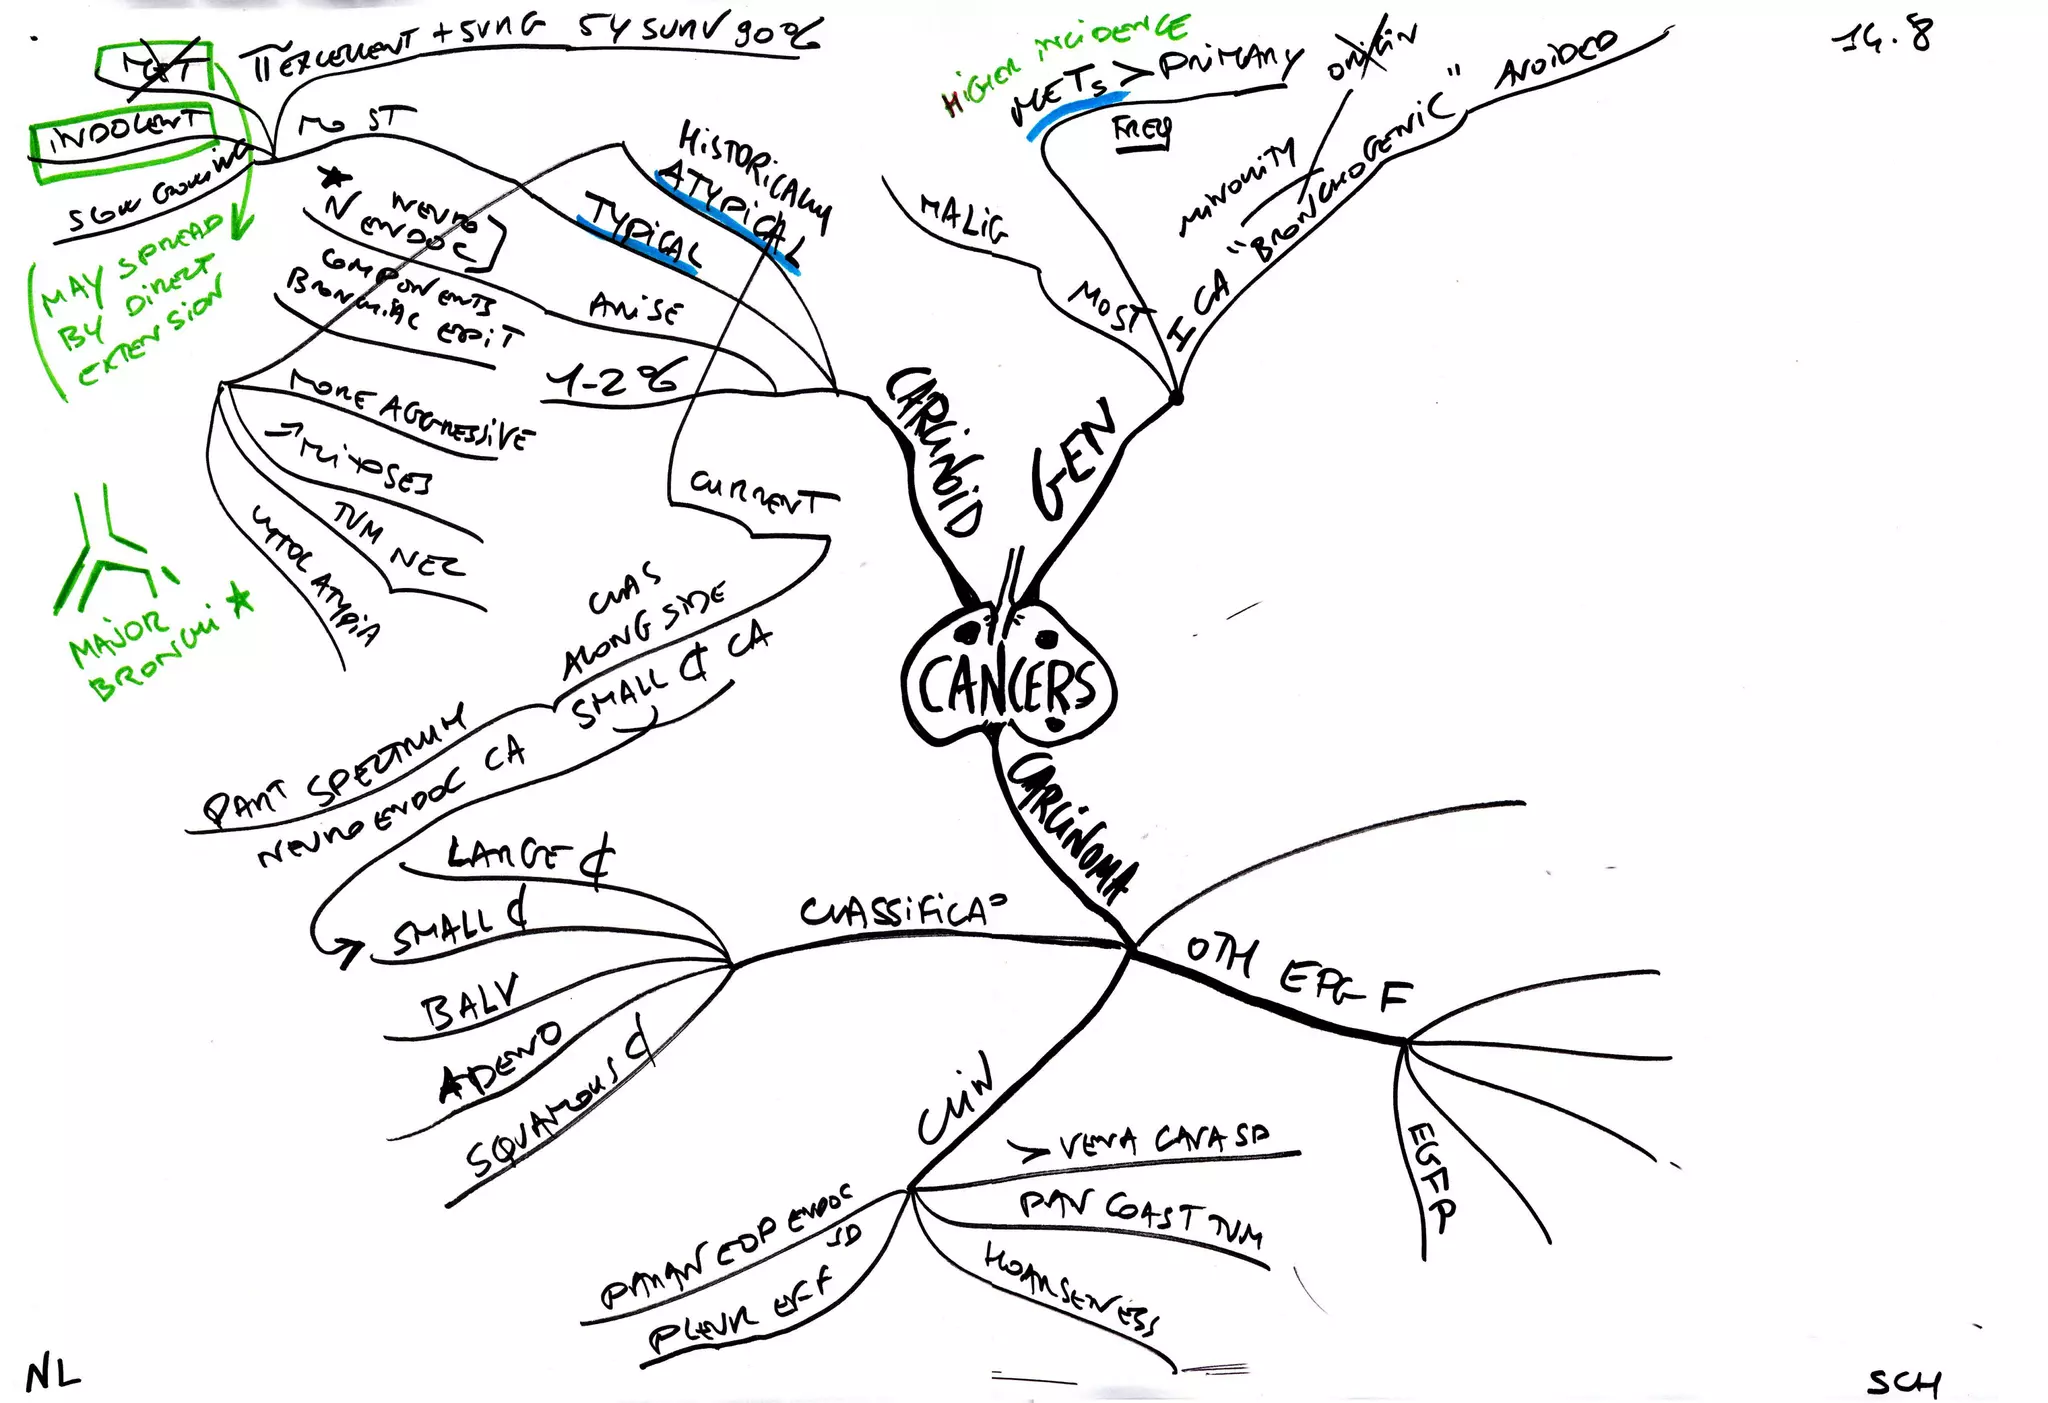 14.8
HIGHER INCIDENCE
METS > PRIMARY
FREQ
MALIG
MOST
ORIGIN
MINORITY
I CA "BRONCHOGENIC" AVOIDED
GEN
MET
INDOLENT
SLOW GROWING
EXCELLENT + SURG 5Y SURV 90%
MOST
MAY SPREAD
BY DIRECT
EXTENSION
HISTORICALLY
ATYPICAL
TYPICAL
NEURO
ENDOC
COMPONENTS
BRONCHIAL EPIT
ARISE
1-2%
CARCINOID
MORE AGGRESSIVE
MITOSES
TUM NEC
CYTOC ATYPIA
MAJOR
BRONCHI
CURRENT
CLAS
ALONGSIDE
SMALL ₵ CA
PART SPECTRUM
NEUROENDOC CA
CANCERS
CARCINOMA
CLASSIFICAº
LARGE ₵
SMALL ₵
BALV
ADENO
SQUAMOUS ₵
OTH EPG F
EGFP
CLIN
> VENA CAVA SD
PAN COAST TUM
HOARSENESS
PARANEOP ENDOC
SD
PLEUR EFF
NL
SCH